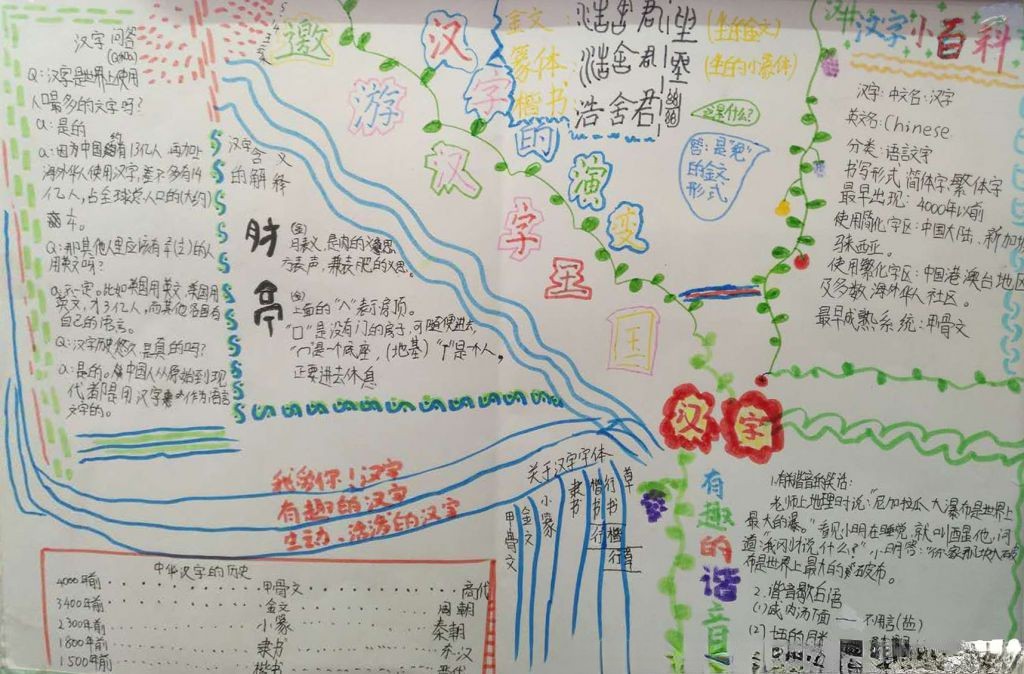 汉字问答
(Q and a)
Q:汉字是世界上使用
人口最多的文字吗?
a:是的
a:因为中国约有13亿人,再加上
海外华人使用汉字,差不多有14
亿人,占全球总人口的(大约)
Q:那其他人里应该有
用英文吗?
a:不一定。比如美国用英文,英国用
英文,才3亿人,而其他各国有
自己的语言。
Q:汉字历史悠久,是真的吗?
a:是的。中国人从原始到现
代都是用汉字来作为语言
文字的。
邀游汉字王国
汉字的演变
金文
篆体
楷书
浩舍君
浩舍君
浩舍君
(坐的金文)
(坐的小篆体)
这是什么?
答:是“兔”
的金文
形式
汉字含义
的解释
肘
月表义,是肉的意思
方表声,兼表肥的义思。
亭
上面的“人”表示房顶。
“口”是没有门的房子,可随便进去,
“冖”是一个底座,(地基)“丁”是一个人,
正要进去休息
汉字小百科
汉字:中文名:汉字
英文名:Chinese
分类:语言文字
书写形式:简体字、繁体字
最早出现:4000年以前
使用简化字区:中国大陆、新加坡
马来西亚。
使用繁化字区:中国港澳台地区
及多数海外华人社区。
最早成熟系统:甲骨文
汉字
我爱你!汉字
有趣的汉字
生动、活泼的汉字
关于汉字字体
甲骨文
金文
小篆
隶书
楷书
行书
草
行楷
行草
中华汉字的历史
4000年前……甲骨文……商代
3400年前……金文……周朝
2300年前……小篆……秦朝
1800年前……隶书……东汉
1500年前……楷书……晋代
有趣的谐音
1.有谐音的笑话:
老师上地理时说:“尼加拉瓜大瀑布是世界上
最大的瀑。”看见小明在睡觉,就叫醒他,问
道:“我刚才说什么?”小明答:
布是世界上最大的
2.谐音歇后语
(1)咸肉汤下面——不用言(盐)
(2)